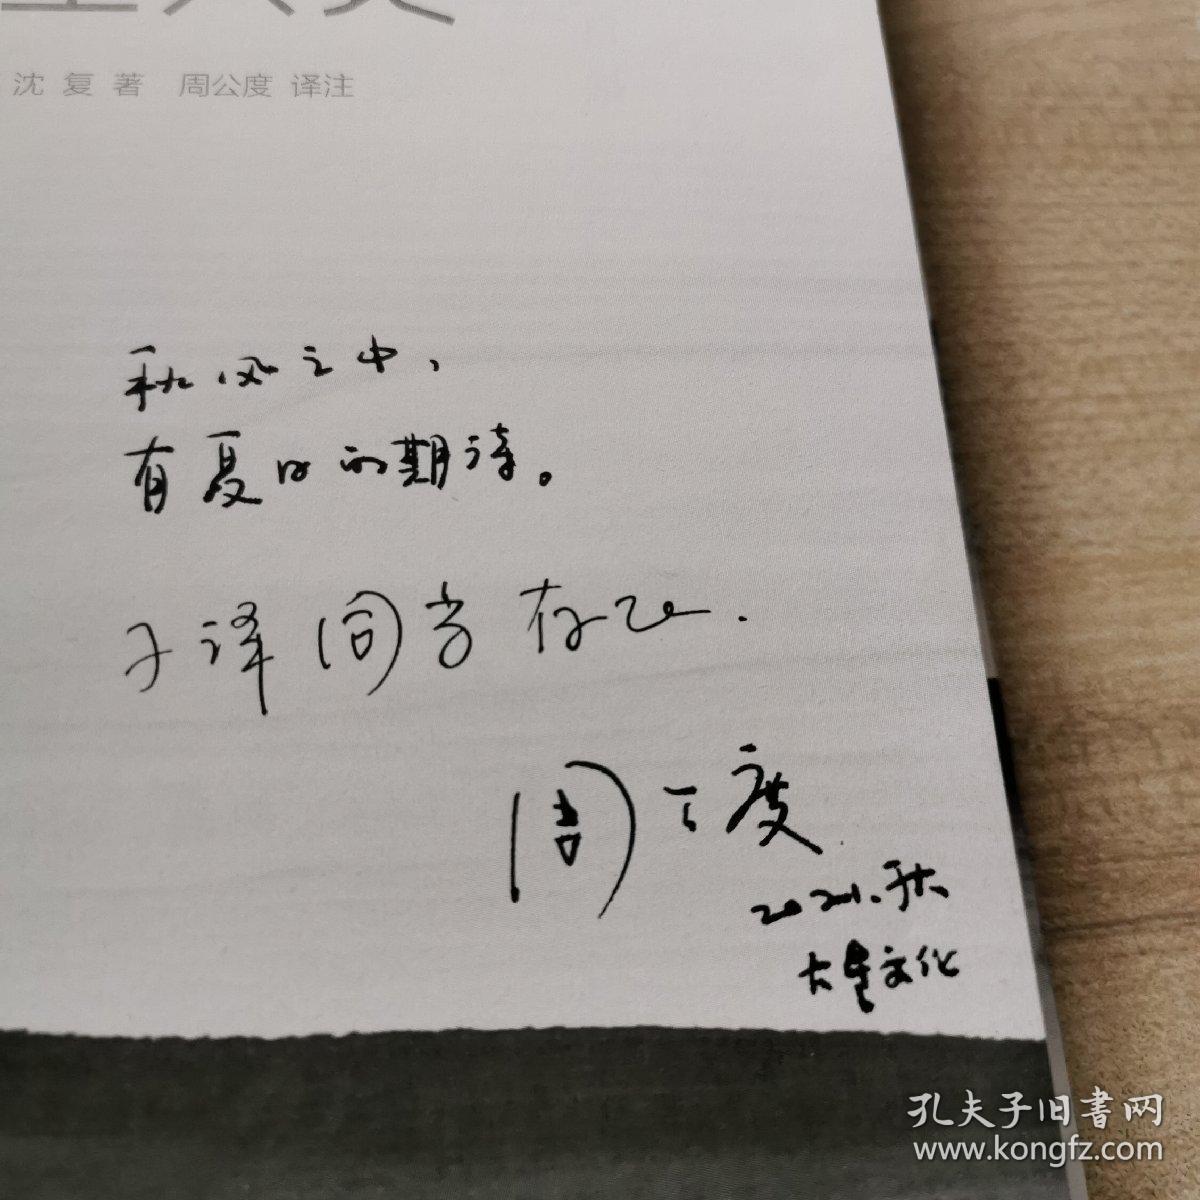 沈 复 著 周公度 译注
秋风之中，
有夏日的期待。
子译同学存正.
周公度
2021.秋
大星文化
孔夫子旧书网
www.kongfz.com